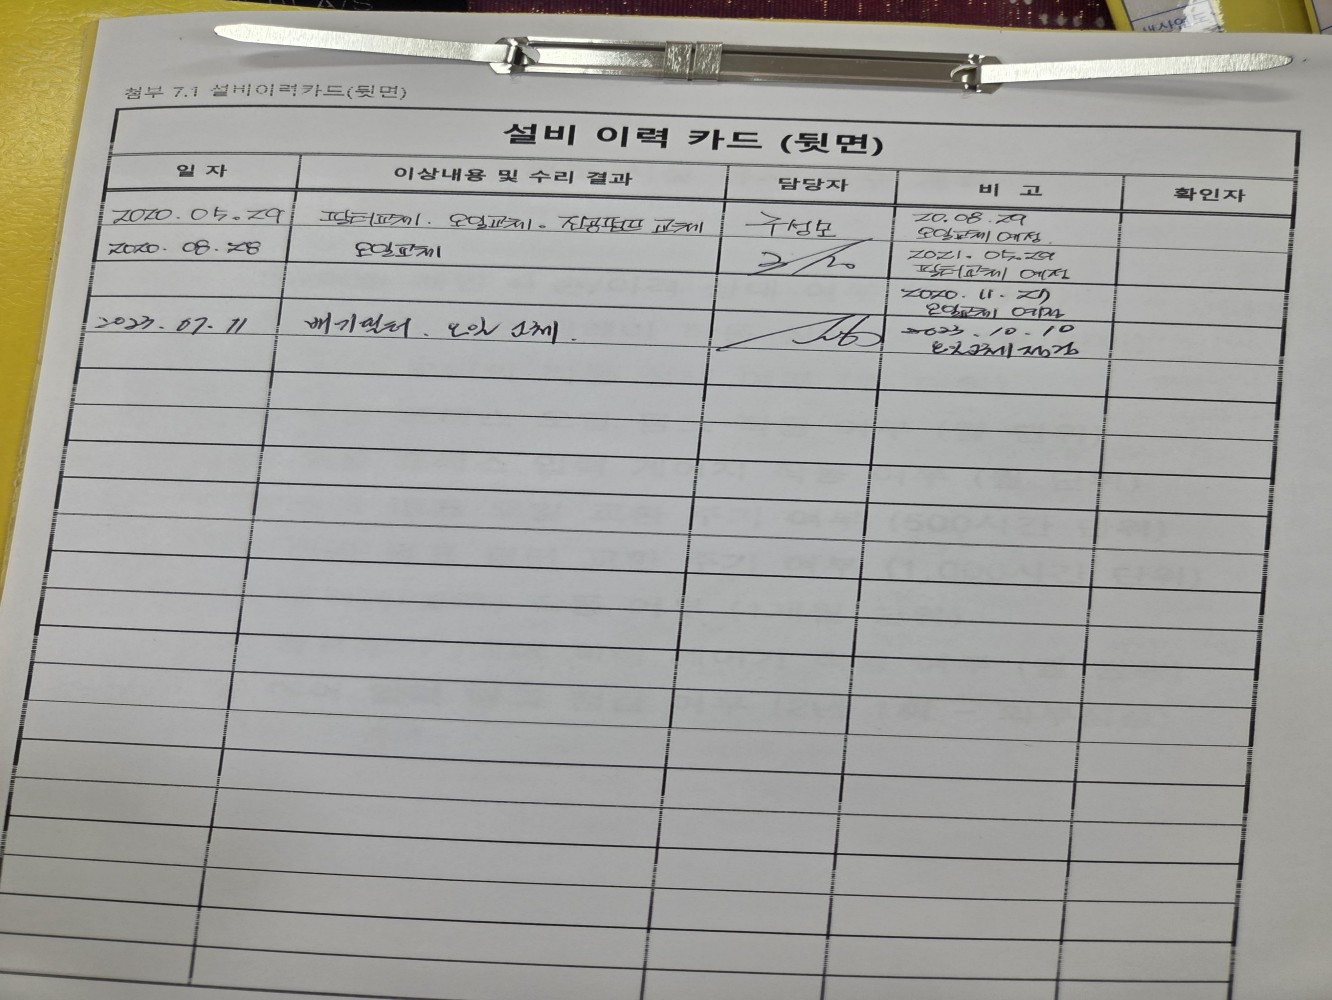 첨부 7.1 설비이력카드(뒷면)
설비 이력 카드 (뒷면)
일 자 이상내용 및 수리 결과 담당자 비 고 확인자
2020.05.29 필터교체. 오일교체. 진공펌프 교체 구성모 20.08.29
오일교체 예정
2020.08.28 오일교체 2021.05.29
필터교체 예정
2020.11.27
오일교체 예정
2023.07.11 배기필터. 오일 교체. 2023.10.10
오일교체